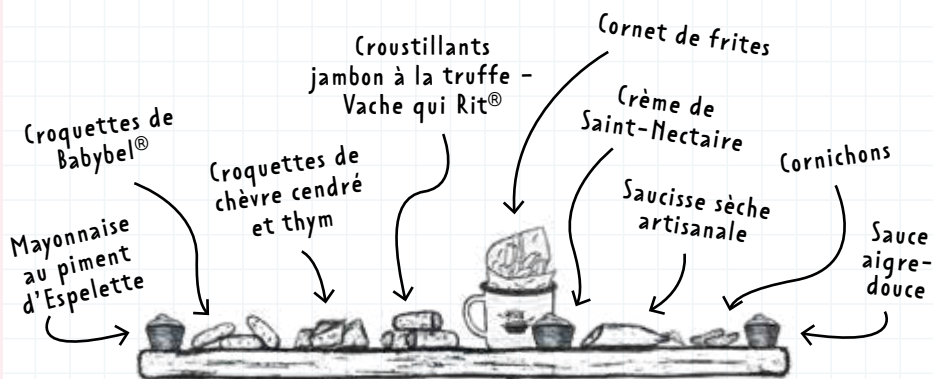 Mayonnaise
au piment
d'Espelette
Croquettes de
Babybel®
Croquettes de
chèvre cendré
et thym
Croustillants
jambon à la truffe –
Vache qui Rit®
Cornet de frites
Crème de
Saint-Nectaire
Saucisse sèche
artisanale
Cornichons
Sauce
aigre-
douce